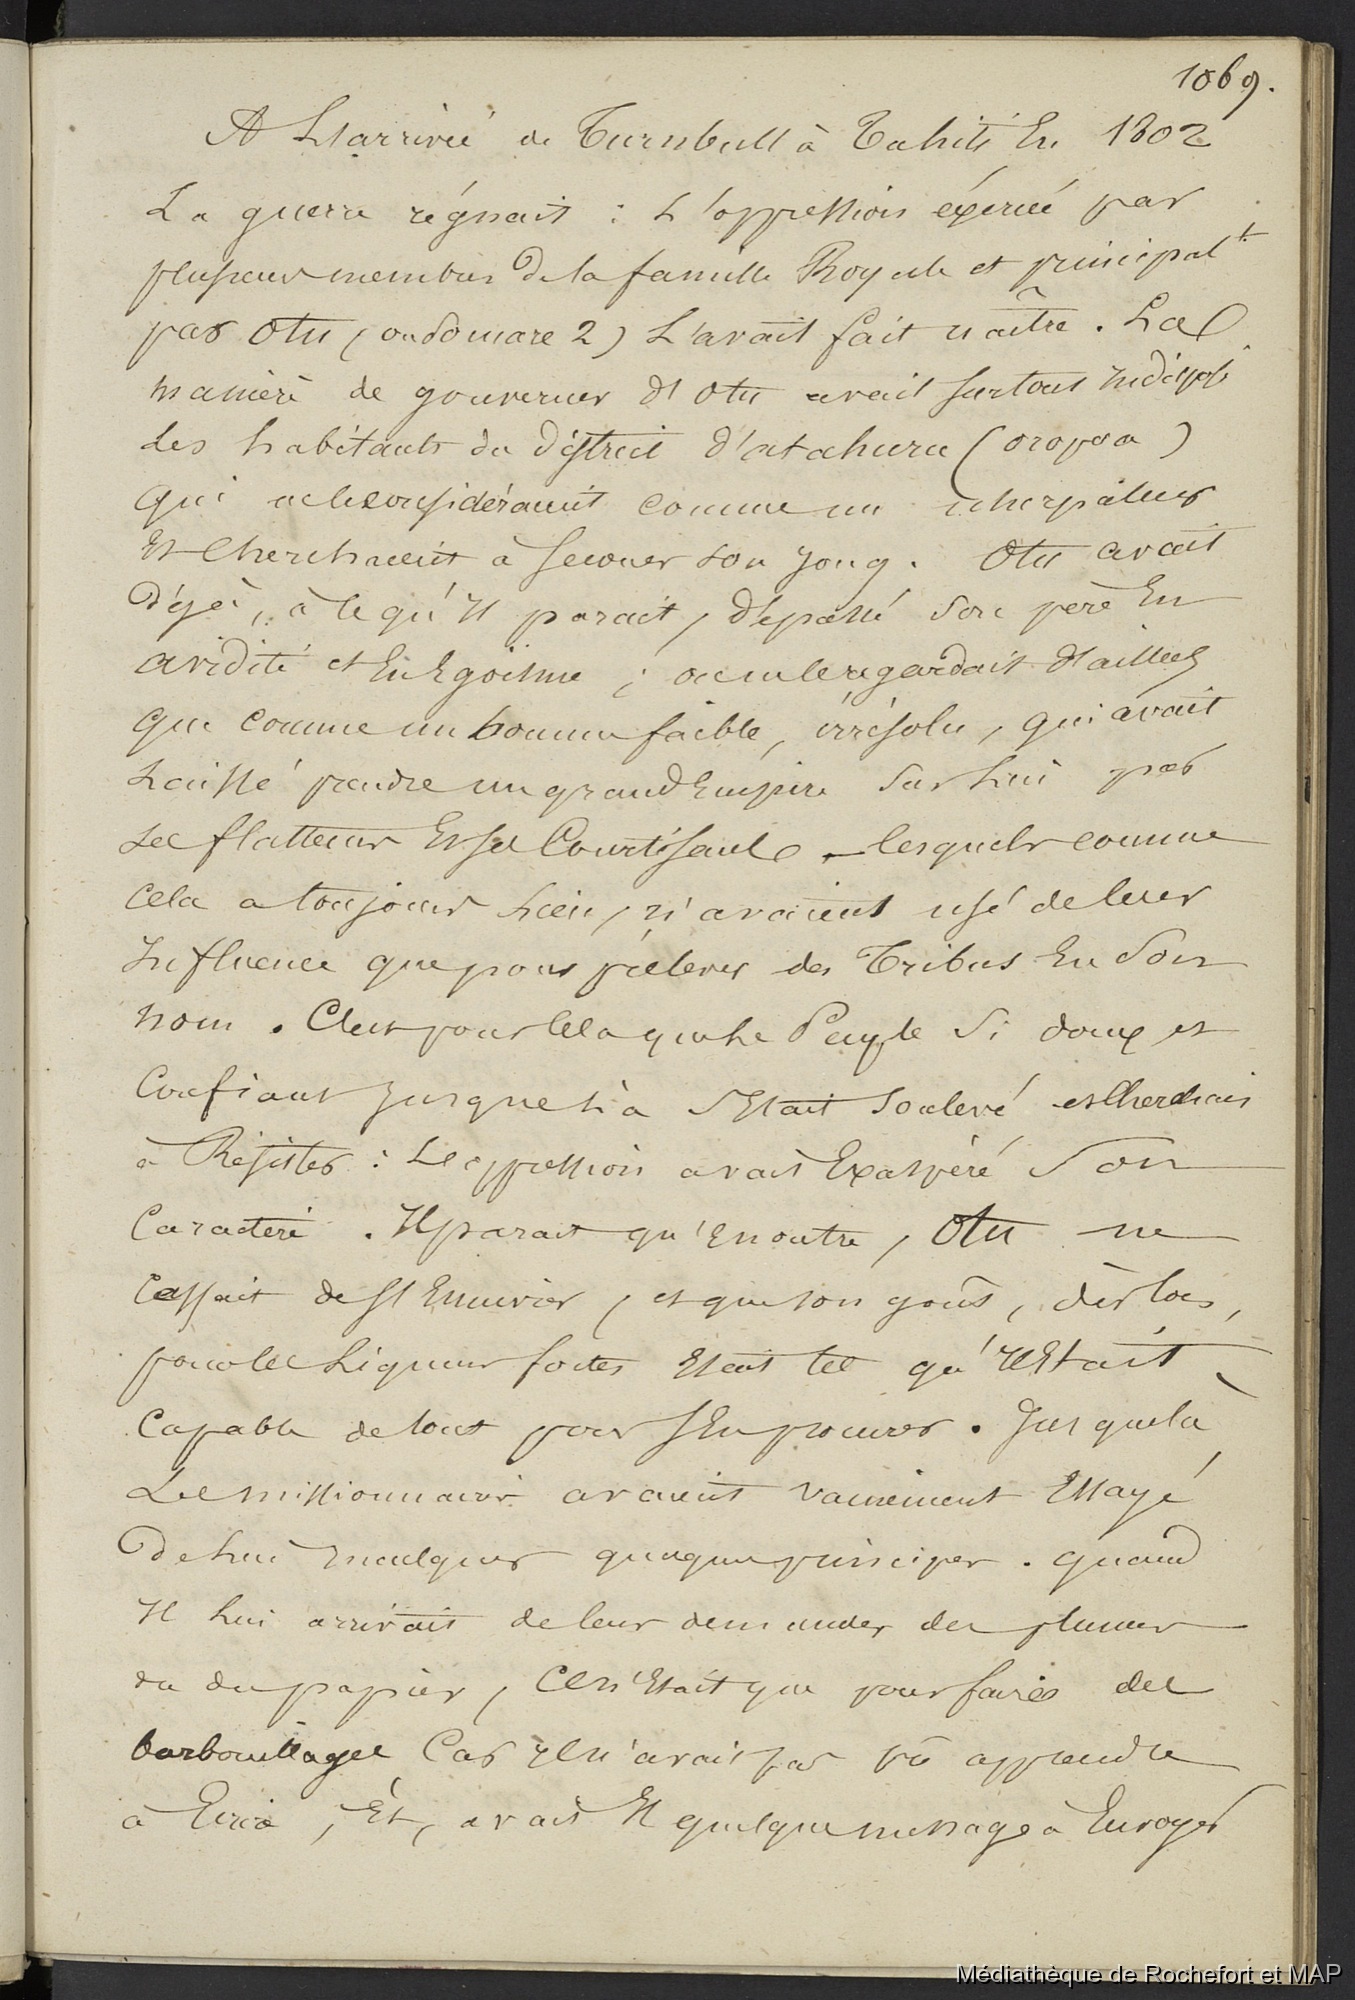 1069.
A L'arrivée de Turnbull à Tahiti En 1802
La guerre régnait : L'oppression éxercée par
plusieurs membres de la famille Royale et principalt
par Otu (ou Pomare 2) L'avait fait naître. La
manière de gouverner d'Otu avait surtout Indisposé
les habitants du District d'atahuru (oropaa)
qui le considéraient comme un usurpateur
Et Cherchaient à secouer son joug. Otu avait
Déjà, à ce qu'Il parait, dépassé son père En
avidité et En Egoïsme ; on ne le regardait d'ailleurs
que comme un homme faible, irrésolu, qui avait
Laissé prendre un grand Empire sur Lui par
ses flatteurs Et ses Courtisans – lesquels comme
cela a toujours Lieu, n'avaient usé de leur
Influence que pour prélever des Tributs En son
nom. C'est pour cela que Le Peuple si doux et
Confiant Jusque Là s'Etait soulevé et Cherchait
à Résister : L'oppression avait Exaspéré son
Caractère. Il parait qu'En outre, Otu ne
Cessait de s'Enivrer, et que son goût, dès lors,
pour les Liqueurs fortes Etait tel qu'Il Etait
Capable de tout pour s'En procurer. Jusque là
Les missionnaires avaient vainement Essayé
De Lui Inculquer quelques principes. quand
Il Lui arrivait de leur demander des plumes
ou du papier, Ce n'Etait que pour faire des
barbouillages Car Il n'avait pas pû apprendre
à Ecrire, Et, avait Il quelque message à Envoyer
Médiathèque de Rochefort et MAP